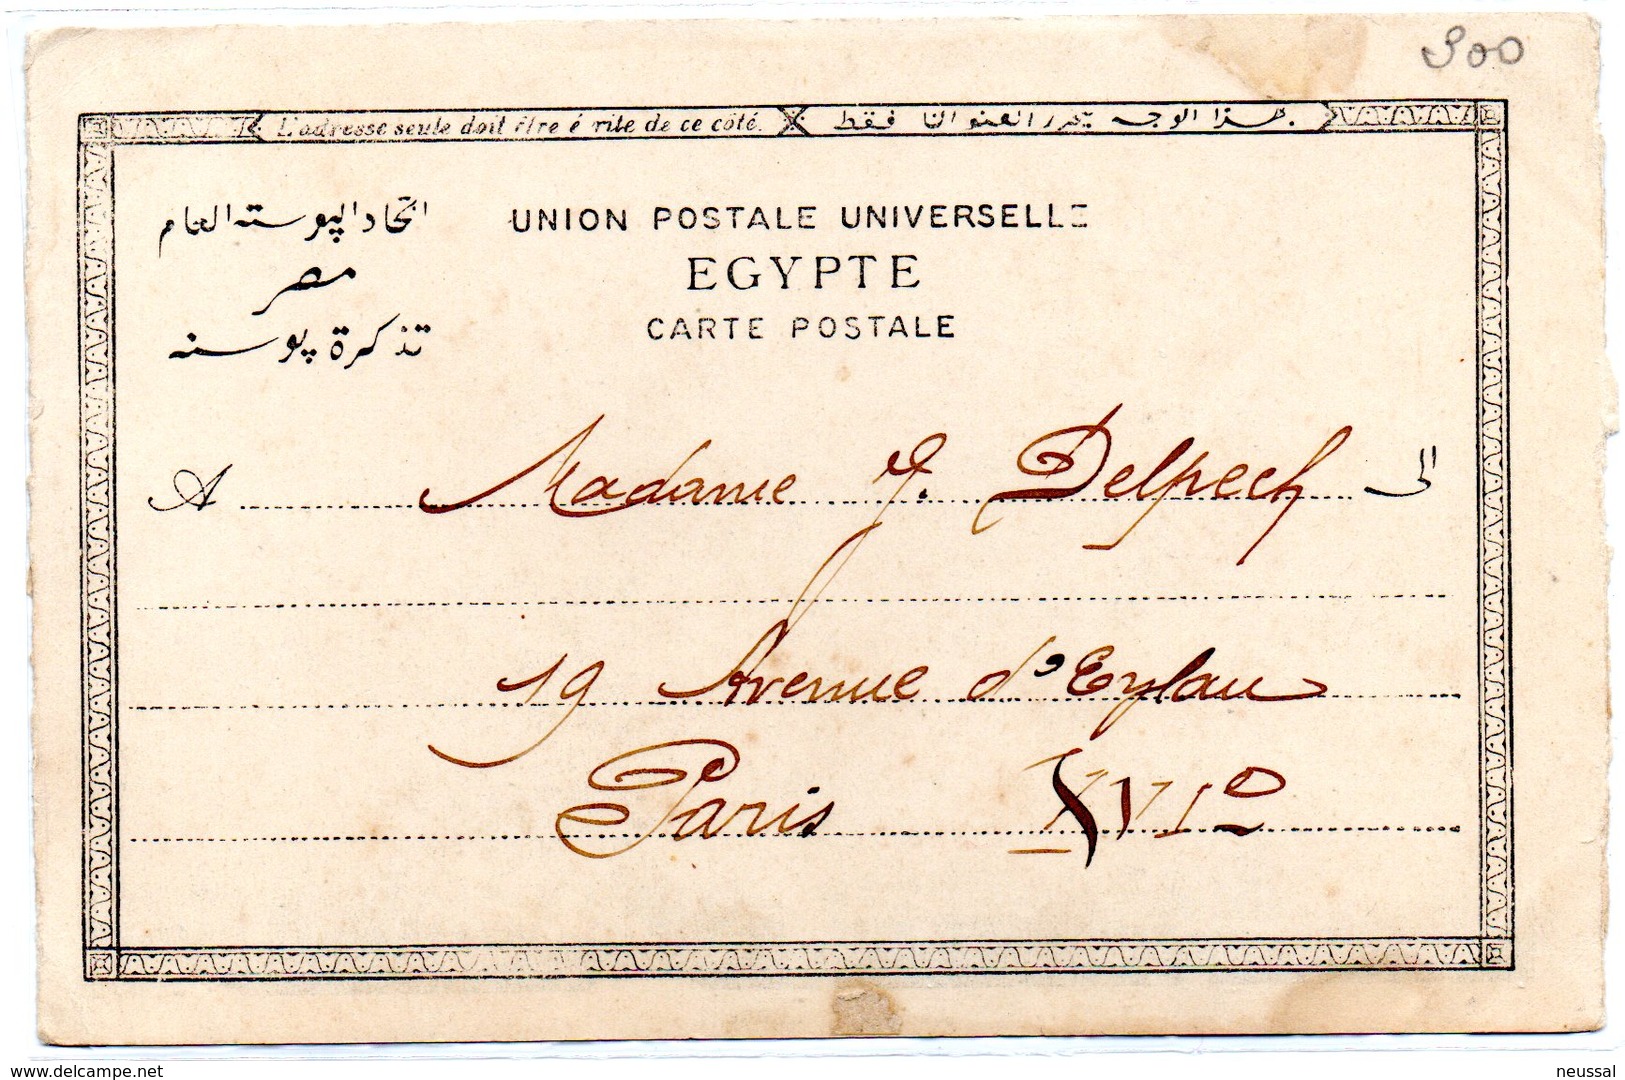 300
L'adresse seule doit être é rite de ce côté.
هذا الوجه يحرر العنوانا فقط
اتحاد البوسته العام
UNION POSTALE UNIVERSELLE
مصر
EGYPTE
تذكرة بوسته
CARTE POSTALE
A Madame J. Delpech الى
19 Avenue d'Eylau
Paris XVIe
www.delcampe.net
neussal